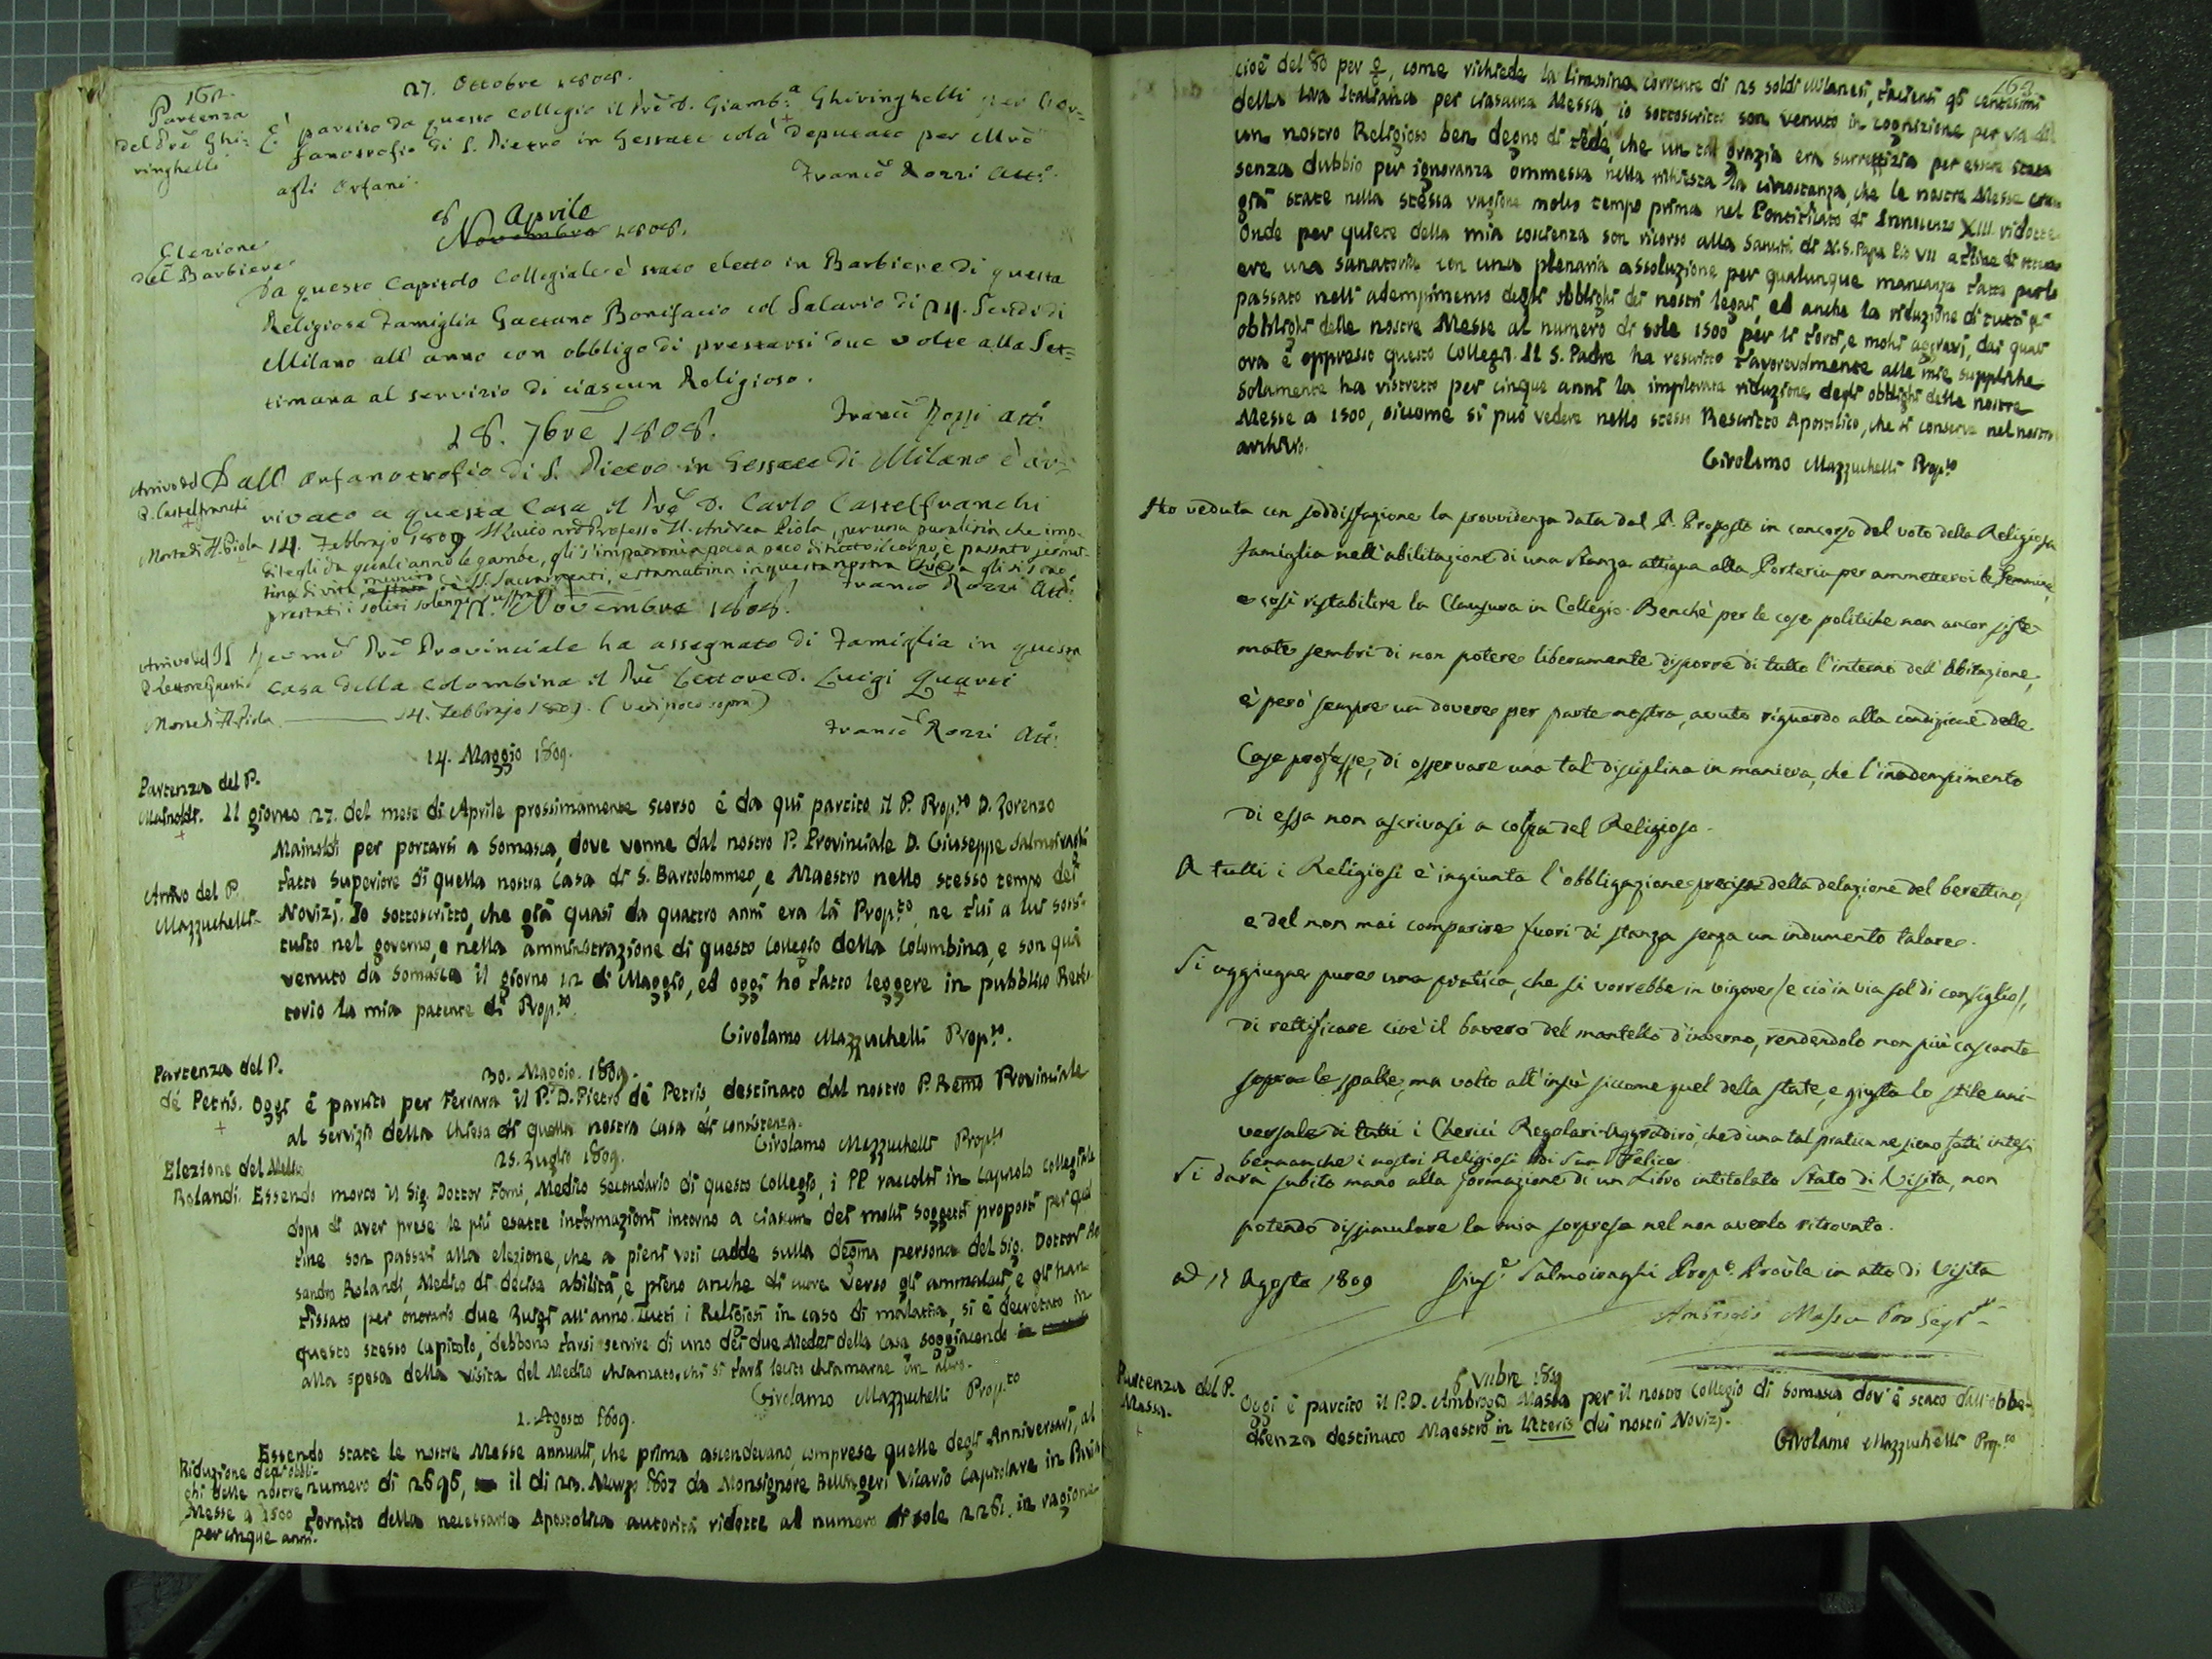 162.
27. Ottobre 1808.
Partenza
del Prē Ghi-
ringhelli
È partito da questo Collegio il Prē D. Giamb.a Ghiringhelli per l'Or-
fanotrofio di S. Pietro in Gessate colà deputato per Mrō
agli Orfani.
Francō Rozzi Att.o
8 Aprile
Novembre 1808.
Elezione
del Barbiere
Da questo Capitolo Collegiale è stato eletto in Barbiere di questa
Religiosa Famiglia Gaetano Bonifacio col Salario di 24. Scudi di
Milano all'anno con obbligo di prestarsi due volte alla Set=
timana al servizio di ciascun Religioso.
Francō Rozzi Att.o
18. 7bre 1808.
Arrivo del
P. Castelfranchi
Dall'Orfanotrofio di S. Pietro in Gessate di Milano è ar-
rivato a questa Casa il Prē D. Carlo Castelfranchi
Morte di H. Piola 14. Febbrajo 1809 Il laico nrō Professo H. Andrea Piola, per una paralisia che imp-
ditegli da qualch'anno le gambe, gli s'impadronì a poco a poco di tutto il corpo, è passato
di vita, munito SS. Sacramenti, e stamattina in questa nostra Chiesa gli si sono
prestati i soliti solenni suffragj
Francō Rozzi Att.o
Novembre 1808.
Arrivo del
P. Lettore Quarti
Il Rev.mō Prē Provinciale ha assegnato di Famiglia in questa
Casa della Colombina il Prē Lettore D. Luigi Quarti
Morte di H. Piola 14. Febbrajo 1809. (Vedi poco sopra)
Francō Rozzi Att.o
14. Maggio 1809.
Partenza del P.
Mainoldi.
Il giorno 27. del mese di Aprile prossimamente scorso è da qui partito il P. Prop.to D. Lorenzo
Mainoldi per portarsi a Somasca, dove venne dal nostro P. Provinciale D. Giuseppe Salmoiraghi
fatto Superiore di quella nostra Casa di S. Bartolommeo, e Maestro nello stesso tempo dei
Arrivo del P.
Mazzuchelli
Novizj. Io sottoscritto, che già quasi da quattro anni era là Prop.to, ne fui a lui sosti-
tuito nel governo, e nella amministrazione di questo Collegio della Colombina, e son quà
venuto da Somasca il giorno 12 di Maggio, ed oggi ho fatto leggere in pubblico Refet-
torio la mia patente di Prop.to
Girolamo Mazzuchelli Prop.to.
30. Maggio. 1809.
Partenza del P.
de Petris.
Oggi è partito per Ferrara il P. D. Pietro de Petris, destinato dal nostro P. Remō Provinciale
al servizio della Chiesa di quella nostra Casa di consistenza.
Girolamo Mazzuchelli Prop.to
25. Luglio 1809.
Elezione del Medico
Rolandi.
Essendo morto il Sig. Dottor Forni, Medico Secondario di questo Collegio, i PP raccolti in Capitolo collegiale
dopo di aver prese le più esatte informazioni intorno a ciascun dei molti Soggetti proposti per quel
fine son passati alla elezione, che a pieni voti cadde sulla degma persona del Sig. Dottor Ales-
sandro Rolandi, Medico di decisa abilità, e pieno anche di cuore verso gli ammalati, e gli han
fissato per onorario due Luigi all'anno. Tutti i Religiosi in caso di malattia, si è decretato in
questo stesso Capitolo, debbono farsi servire di uno dei due Medici della Casa soggiacendo
alla spesa della visita del Medico chiamato, chi si farà lecito chiamarne un altro.
Girolamo Mazzuchelli Prop.to
1. Agosto 1809.
Riduzione degli obbli-
ghi delle nostre
Messe a 1500
per cinque anni.
Essendo state le nostre Messe annuali, che prima ascendevano, comprese quelle degli Anniversarj, al
numero di 2696, il dì 23. Marzo 1807 da Monsignore Bellingeri Vicario Capitolare in Pavia
fornito della necessaria Apostolica autorità ridotte al numero di sole 2261. in ragione
163.
cioè del 80 per %, come richiede la limosina corrente di 25 soldi Milanesi, facienti 96 centesimi
della Lira Italiana per ciascuna Messa, io sottoscritto son venuto in cognizione per via di
un nostro Religioso ben degno di fede, che un tal grazia era surrettizia per essere stata
senza dubbio per ignoranza ommessa nella richiesta la circostanza, che le nostre Messe eran
già state nella stessa ragione molto tempo prima nel Pontificato di Innocenzo XIII. ridotte
Onde per quiete della mia coscienza son ricorso alla Santità di N. S. Papa Pio VII affine di otten-
ere una sanatoria con una plenaria assoluzione per qualunque mancanza fatta per lo
passato nell'adempimento degli obblighi dei nostri legati, ed anche la riduzione di tutti gli
obblighi delle nostre Messe al numero di sole 1500 per li forti, e molti aggravj, dai quali
ora è oppresso questo Collegio. Il S. Padre ha rescritto favorevolmente alle mie suppliche
Solamente ha ristretto per cinque anni la implorata riduzione degli obblighi delle nostre
Messe a 1500, siccome si può vedere nello stesso Rescritto Apostolico, che si conserva nel nostro
archivio.
Girolamo Mazzuchelli Prop.to
Ho veduta con soddisfazione la provvidenza data dal P. Proposto in concorso del voto della Religiosa
famiglia nell'abilitazione di una Stanza attigua alla Porteria per ammettervi le Femmine,
e così ristabilire la Clausura in Collegio. Benchè per le cose politiche non ancor siste-
mate sembri di non potere liberamente disporre di tutto l'interno dell'abitazione,
è però sempre un dovere per parte nostra, avuto riguardo alla condizione delle
Case professe, di osservare una tal disciplina in maniera, che l'inadempimento
di essa non ascrivasi a colpa del Religioso.
A tutti i Religiosi è ingiunta l'obbligazione precisa della delazione del berettino,
e del non mai comparire fuori di stanza senza un indumento talare.
Si aggiugne pure una pratica, che si vorrebbe in vigore (e ciò in via sol di consiglio),
di rettificare cioè il bavero del mantello d'inverno, rendendolo non più cascante
sopra le spalle, ma volto all'insù siccome quel della state, e giusta lo stile uni-
versale di tutti i Cherici Regolari. Aggradirò, che d'una tal pratica ne sieno fatti intesi
bennanche i nostri Religiosi di San Felice.
Si darà subito mano alla formazione di un Libro intitolato Stato di Visita, non
potendo dissimulare la mia sorpresa nel non averlo ritrovato.
ad 17 Agosto 1809 Gius.e Salmoiraghi Prep.o Prov̄le in atto di Visita
Ambrogio Massa Pro Seg.rio
6 Vnbre 1809
Partenza del P.
Massa.
Oggi è partito il P. D. Ambrogio Massa per il nostro Collegio di Somasca dov'è stato dall'obbe-
dienza destinato Maestro in litteris dei nostri Novizj.
Girolamo Mazzuchelli Prop.to